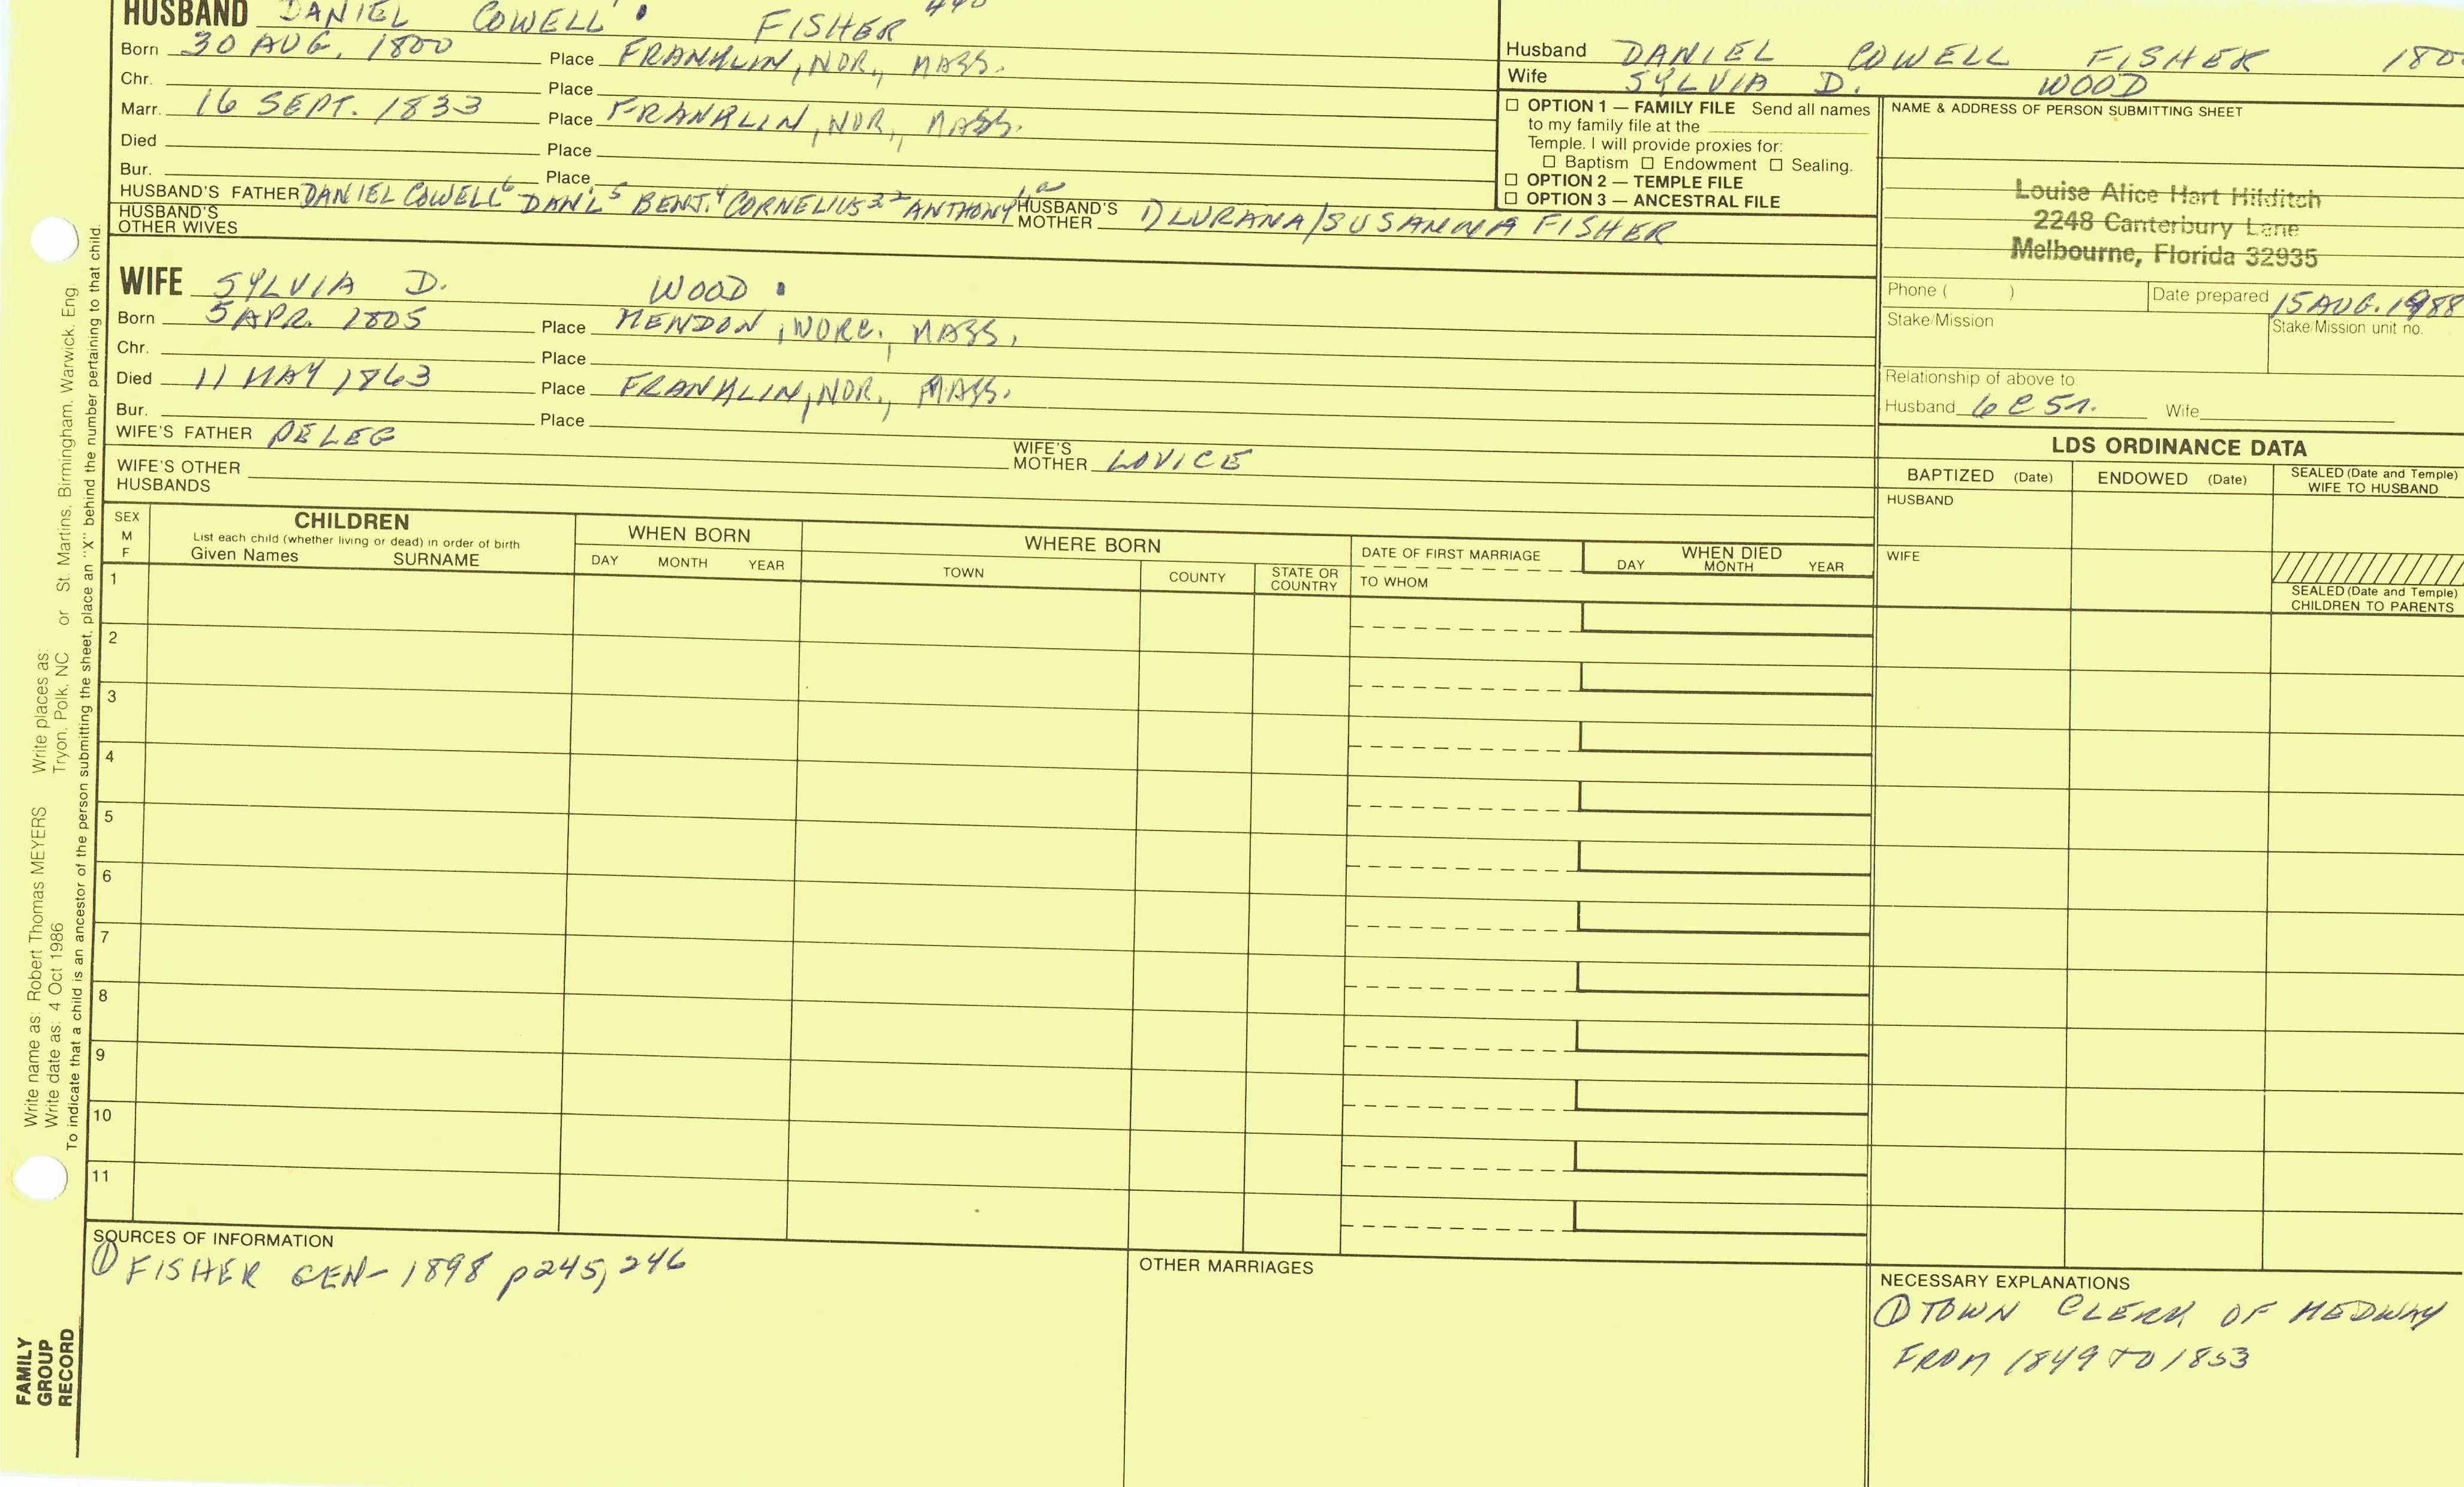 HUSBAND DANIEL COWELL FISHER
Born 30 AUG. 1800 Place FRANKLIN, NOR., MASS.
Chr. Place
Marr. 16 SEPT. 1833 Place FRANKLIN, NOR., MASS.
Died Place
Bur. Place
HUSBAND'S FATHER DANIEL COWELL6 DAN'L5 BENJ.4 CORNELIUS ANTHONY HUSBAND'S MOTHER 1) LURANA/SUSANNA FISHER
HUSBAND'S OTHER WIVES
WIFE SYLVIA D. WOOD
Born 5 APR. 1805 Place MENDON, WORC., MASS.
Chr. Place
Died 11 MAY 1863 Place FRANKLIN, NOR., MASS.
Bur. Place
WIFE'S FATHER PELEG WIFE'S MOTHER LOVICE
WIFE'S OTHER HUSBANDS
Husband DANIEL COWELL FISHER 180
Wife SYLVIA D. WOOD
☐ OPTION 1 — FAMILY FILE Send all names
to my family file at the
Temple. I will provide proxies for:
☐ Baptism ☐ Endowment ☐ Sealing.
☐ OPTION 2 — TEMPLE FILE
☐ OPTION 3 — ANCESTRAL FILE
NAME & ADDRESS OF PERSON SUBMITTING SHEET
Louise Alice Hart Hilditch
2248 Canterbury Lane
Melbourne, Florida 32935
Phone ( ) Date prepared 15 AUG. 1988
Stake/Mission Stake/Mission unit no.
Relationship of above to
Husband 6C5R. Wife
LDS ORDINANCE DATA
BAPTIZED (Date) ENDOWED (Date) SEALED (Date and Temple)
WIFE TO HUSBAND
HUSBAND
WIFE
SEALED (Date and Temple)
CHILDREN TO PARENTS
SEX
M
F
CHILDREN
List each child (whether living or dead) in order of birth
Given Names SURNAME
WHEN BORN
DAY MONTH YEAR
WHERE BORN
TOWN COUNTY STATE OR COUNTRY
DATE OF FIRST MARRIAGE
TO WHOM
WHEN DIED
DAY MONTH YEAR
1
2
3
4
5
6
7
8
9
10
11
SOURCES OF INFORMATION
① FISHER GEN- 1898 p245, 246
OTHER MARRIAGES
NECESSARY EXPLANATIONS
① TOWN CLERK OF MEDWAY
FROM 1849 TO 1853
Write name as: Robert Thomas MEYERS Write places as: Tryon, Polk, NC or St. Martins, Birmingham, Warwick, Eng.
Write date as: 4 Oct 1986
To indicate that a child is an ancestor of the person submitting the sheet, place an "X" behind the number pertaining to that child.
FAMILY
GROUP
RECORD